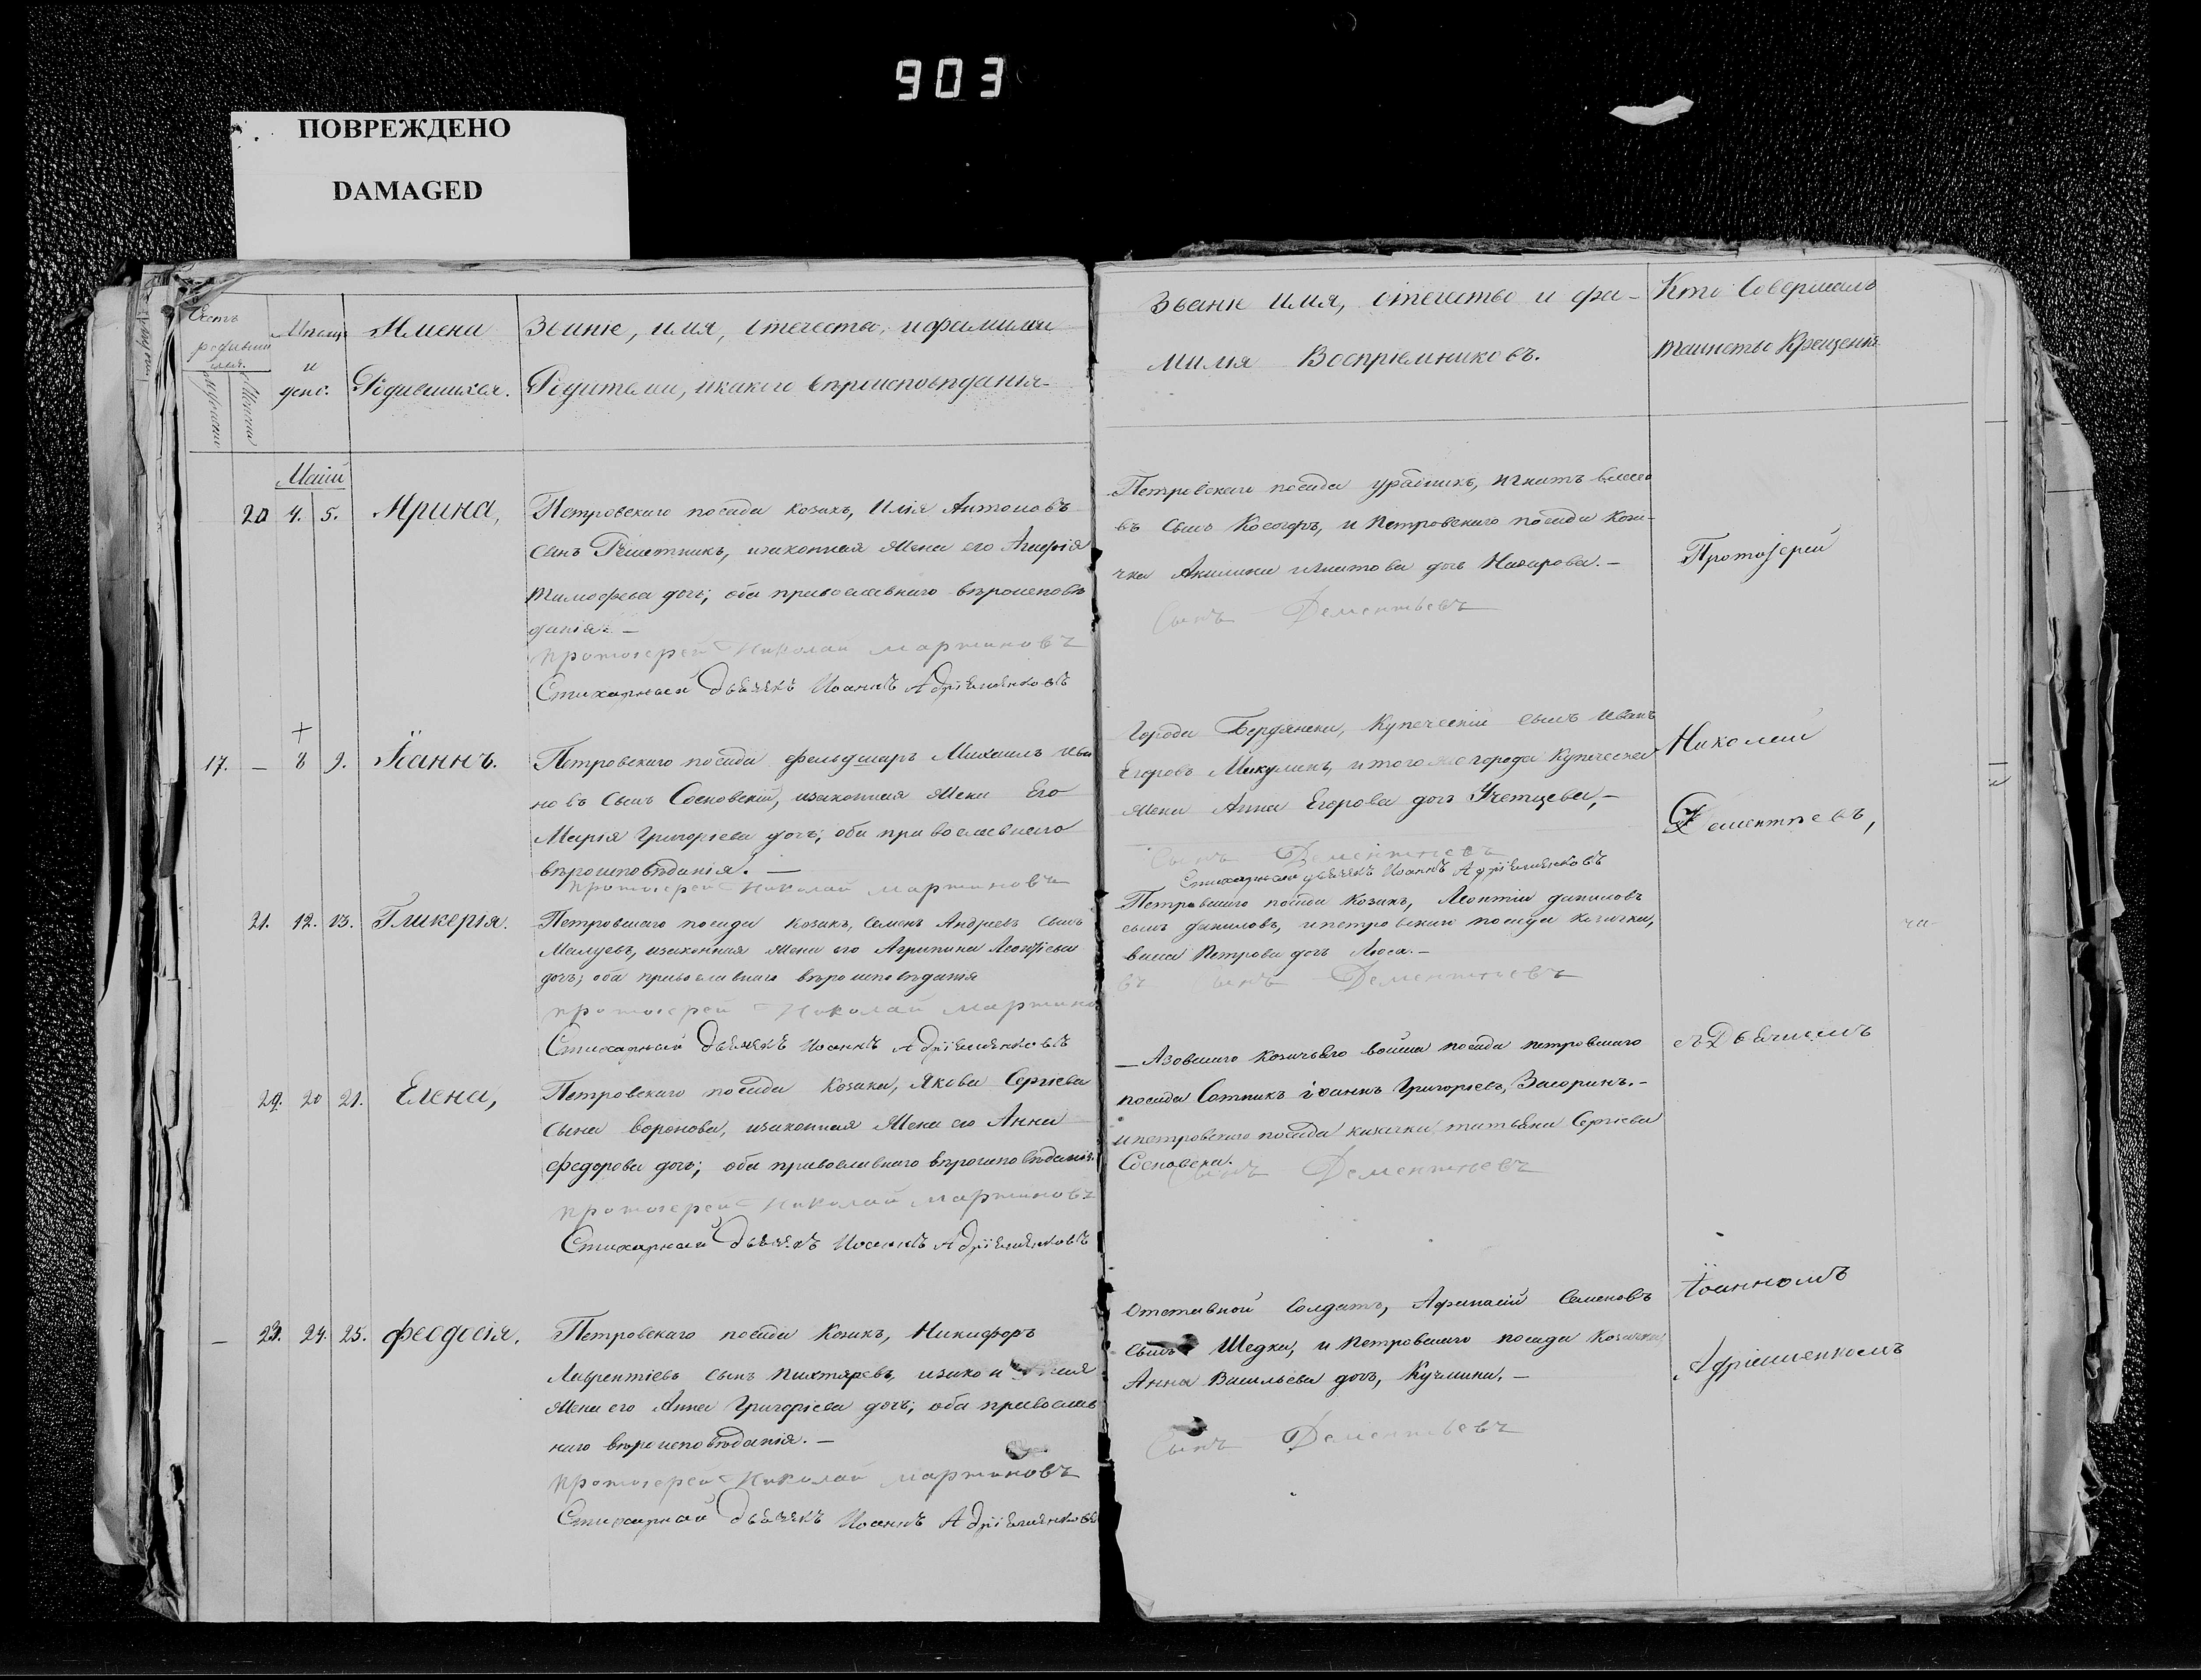 903
ПОВРЕЖДЕНО
DAMAGED
Имена
Родившихся.
Званіе, имя, отечество, и фамилия
Родителей, и какого вѣроисповѣданія
Маій
20 4. 5. Ирина,
Петровскаго посада козакъ, Илія Антоновъ
сынъ Решетникъ, и законная жена его Агафія
Тимофеева дочь; оба православнаго вѣроисповѣ
данія. —
протоіерей Николай мартиновъ
Стихарный дьячекъ Иоаннъ Адріяшенковъ
+
17. — 8 9. Іоаннъ.
Петровскаго посада фельдшаръ Михаилъ Ива
новъ сынъ Сосновскій, и законная жена Его
Марія Григоріева дочь; оба православнаго
вѣроисповѣданія. —
протоіерей Николай мартиновъ
21. 12. 13. Гликерія.
Петровскаго посада козакъ, Семенъ Андреевъ сынъ
и законная жена его Агрипина Леонтіева
дочь; оба православнаго вѣроисповѣданія
протоіерей Николай мартино
Стихарный дьячекъ Иоаннъ Адріяшенковъ
22. 20 21. Елена,
Петровскаго посада козака, Якова Сергіева
сына воронова, и законная жена его Анна
федорова дочь; оба православнаго вѣроисповѣданія
протоіерей Николай мартиновъ
Стихарный дьячекъ Иоаннъ Адріяшенковъ
— 23. 24. 25. феодосія,
Петровскаго посада козакъ, Никифоръ
Лаврентіевъ сынъ Пихтяревъ, и закон
жена его Анна Григоріева дочь; оба православ
наго вѣроисповѣданія. —
протоіерей Николай мартиновъ
Стихарный дьячекъ Иоаннъ Адріяшенковъ
Званіе имя, отечество и фа-
милия Воспріемниковъ.
Петровскаго посада урядникъ, игнатъ власо
въ сынъ и Петровскаго посада Коза-
чка Акилина игнатова дочь Назарова. —
Сынъ Дементьевъ
Города Бердянска, Купеческій сынъ Иванъ
Егоровъ Микулинъ, и того же города Купеческая
жена Анна Егорова дочь —
Сынъ Дементіевъ
Стихарный дьячекъ Иоаннъ Адріяшенковъ
Петровскаго посада козакъ, Леонтій даниловъ
сынъ даниловъ, и петровскаго посада козачка,
Петрова дочь Люса. —
Сынъ Дементіевъ
— Азовскаго козачьяго войска посада петровскаго
посада Сотникъ іоаннъ Григоріевъ, Засоринъ. —
и петровскаго посада козачка татьяна Сергіева
Сосновска.
Сынъ Дементіевъ
Отставной Солдатъ, Афанасій Семеновъ
сынъ Шедка, и Петровскаго посада козачка,
Анна Васильева дочь, Кучмина, —
Сынъ Дементьевъ
Кто Совершалъ
таинство Крещенія
Протоіерей
Николай
Дементіевъ,
съ Дьячкомъ
Іоанномъ
Адріяшенкомъ